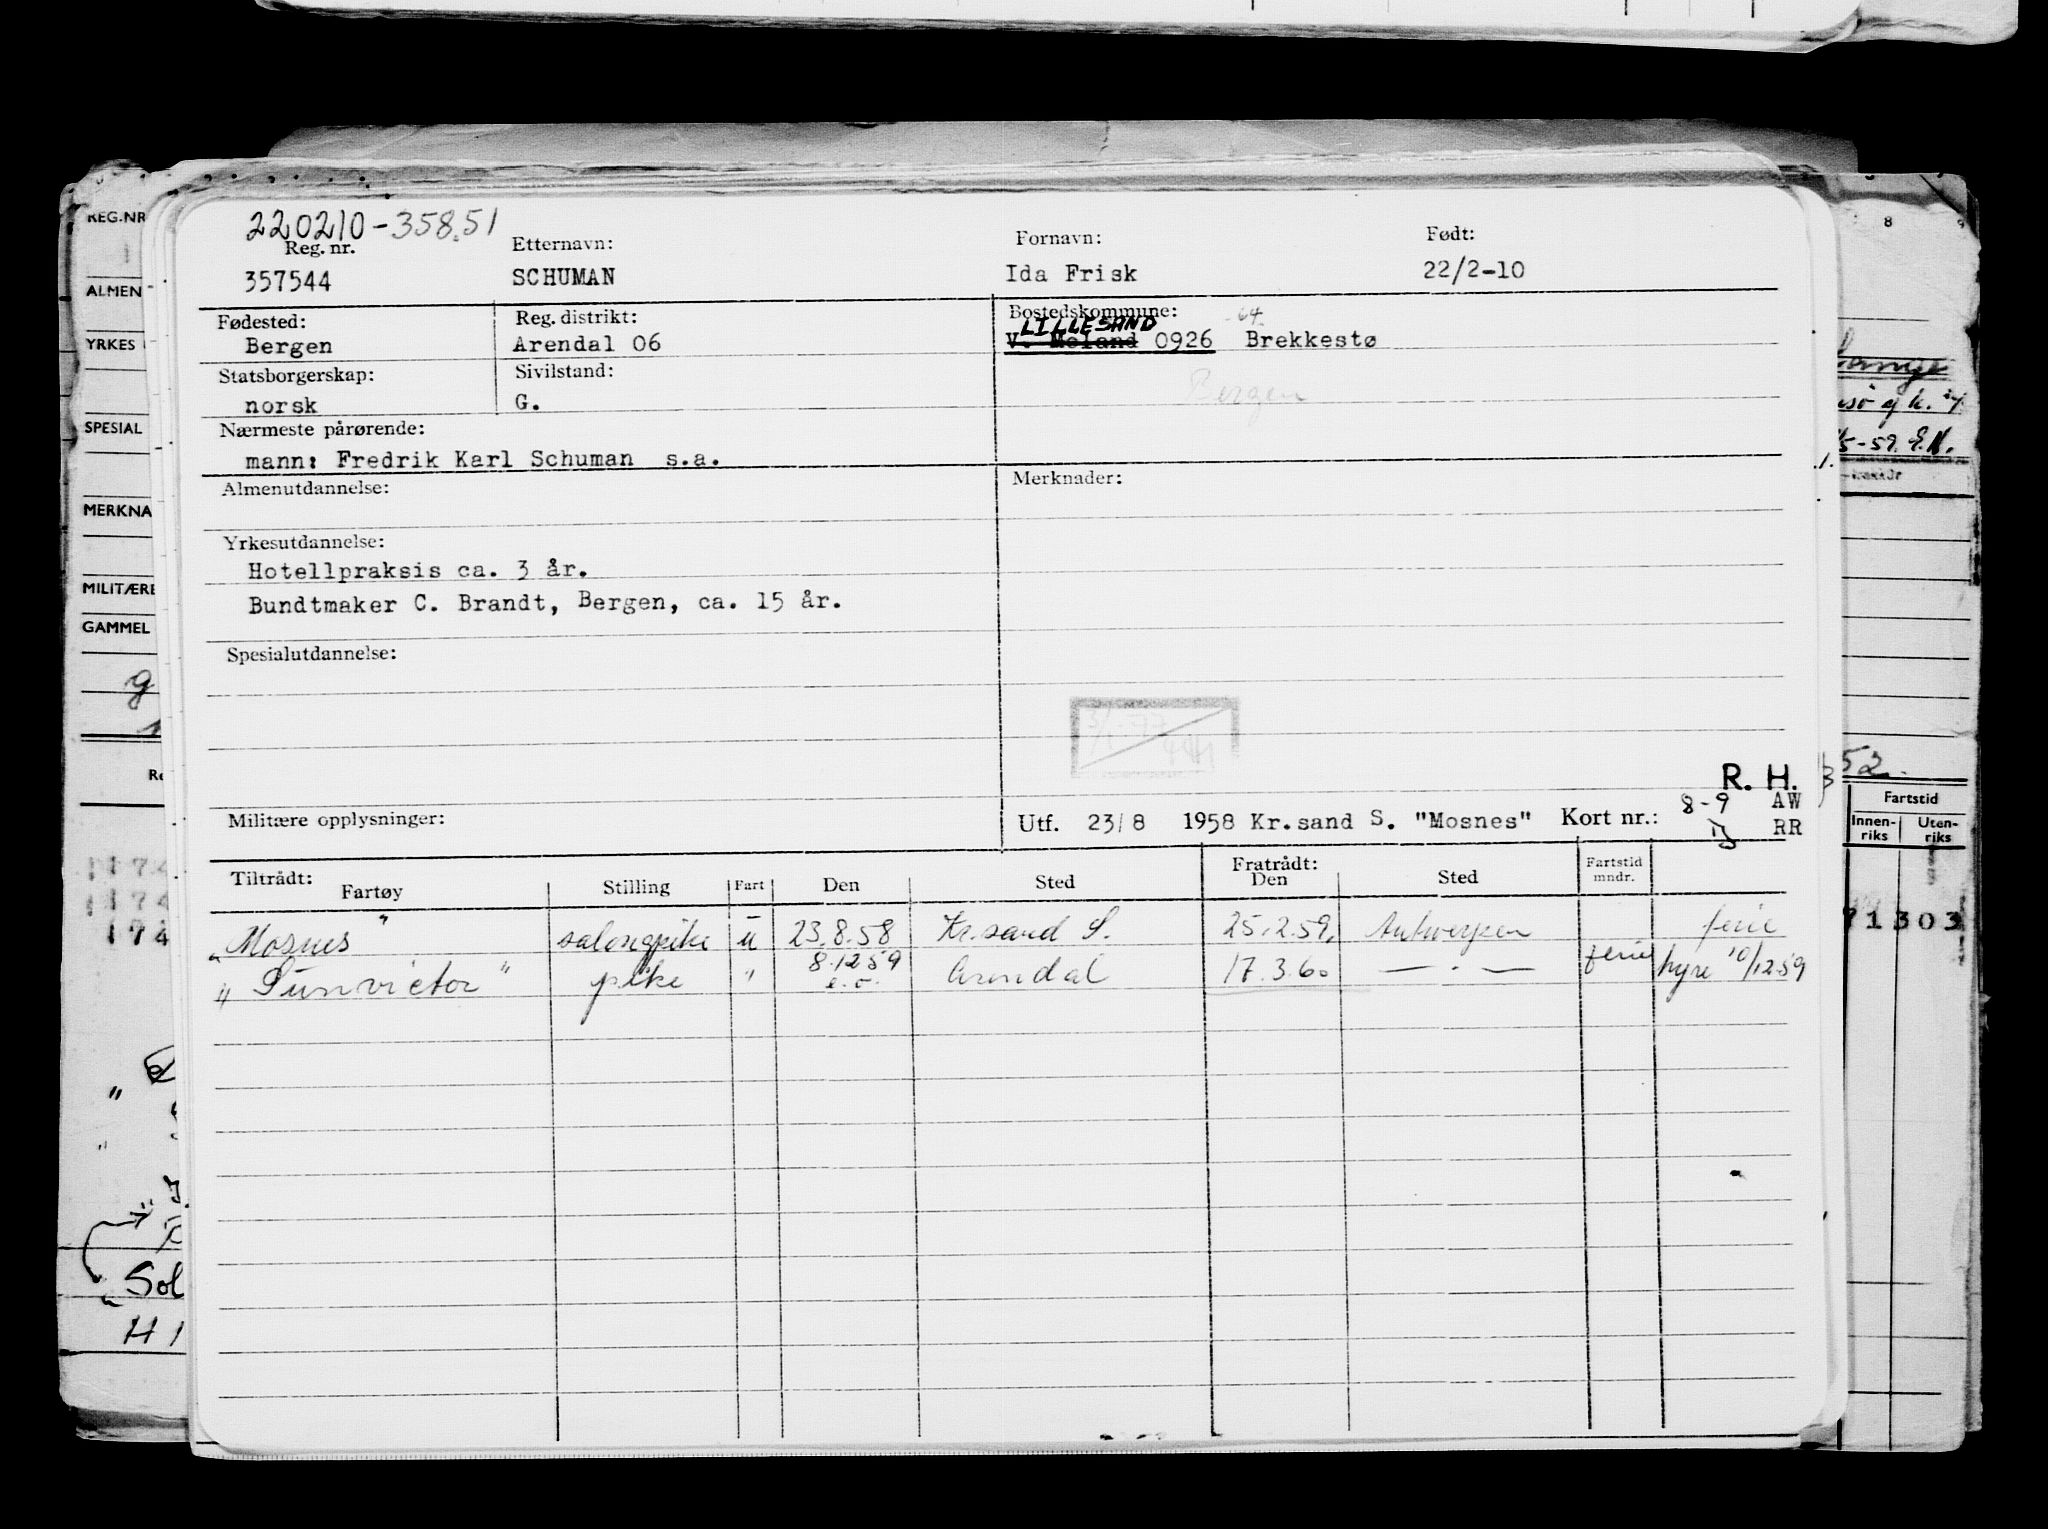 220210-358.51
Reg. nr. Etternavn: Fornavn: Født:
357544 SCHUMAN Ida Frisk 22/2-10
Fødested: Reg. distrikt: Bostedskommune:
LILLESAND -64
Bergen Arendal 06 V. Moland 0926 Brekkestø
Statsborgerskap: Sivilstand:
Bergen
norsk G.
Nærmeste pårørende:
mann: Fredrik Karl Schuman s.a.
Almenutdannelse: Merknader:
Yrkesutdannelse:
Hotellpraksis ca. 3 år.
Bundtmaker C. Brandt, Bergen, ca. 15 år.
Spesialutdannelse:
R. H.
8-9 AW
Militære opplysninger: Utf. 23/8 1958 Kr.sand S. "Mosnes" Kort nr.: RR
Tiltrådt: Fratrådt: Fartstid
Fartøy Stilling Fart Den Sted Den Sted mndr.
"Mosnes" salongpike u 23.8.58 Kr.sand S. 25.2.59. Antwerpen ferie
"Sunvictor" pike " 8.12.59 Arendal 17.3.60 — . — ferie hyre 10/12.59
e.o.
REG.NR
ALMEN
YRKES
SPESIAL
MERKNA
MILITÆRE
GAMMEL
8 9
5-59. E.N.
52.
Fartstid
Innen-riks Uten-riks
71303
174
174
174
Sol
H